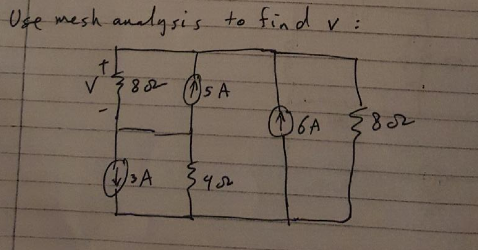 Use mesh analysis to find v :
+
V 8Ω
-
5 A
6A
8Ω
3A
4Ω